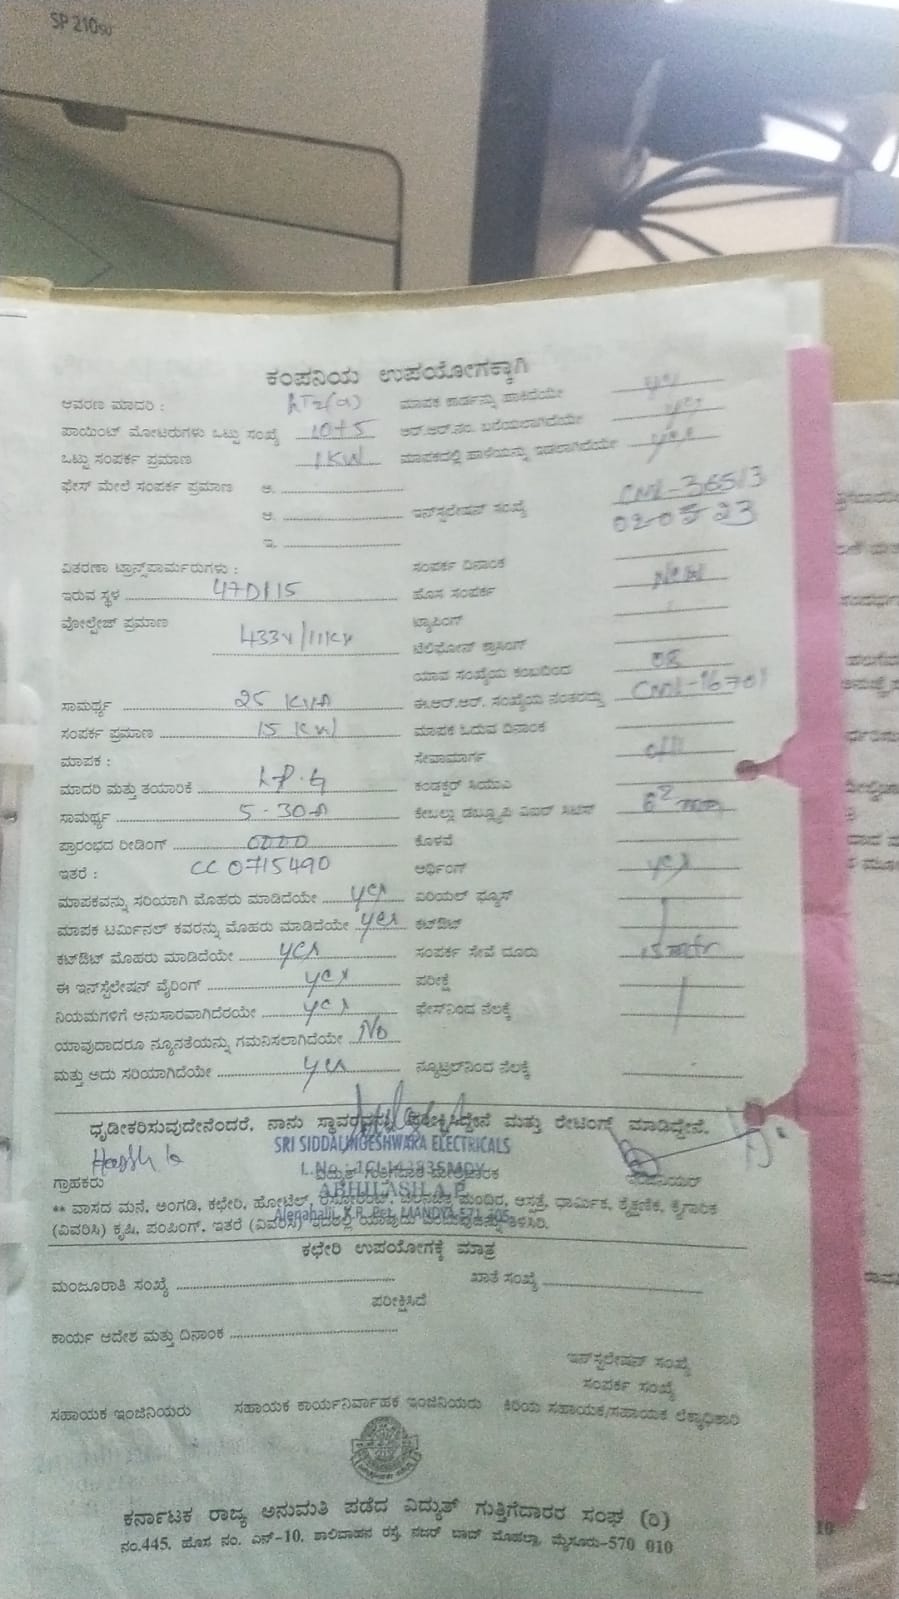 SP 210SU
ಕಂಪನಿಯ ಉಪಯೋಗಕ್ಕಾಗಿ
ಆವರಣ ಮಾದರಿ : LT2(a) ಮಾಪಕ ಕಾರ್ಡನ್ನು ಹಾಕಿದೆಯೇ yes
ಪಾಯಿಂಟ್ ಮೋಟರುಗಳು ಒಟ್ಟು ಸಂಖ್ಯೆ 10+5 ಆರ್.ಆರ್.ನಂ. ಬರೆಯಲಾಗಿದೆಯೇ yes
ಒಟ್ಟು ಸಂಪರ್ಕ ಪ್ರಮಾಣ 1KW ಮಾಪಕದಲ್ಲಿ ಹಾಳೆಯನ್ನು ಇಡಲಾಗಿದೆಯೇ yes
ಫೇಸ್ ಮೇಲೆ ಸಂಪರ್ಕ ಪ್ರಮಾಣ ಅ.
ಆ. ಇನ್‌ಸ್ಟಲೇಷನ್ ಸಂಖ್ಯೆ CML-36513
020523
ಇ.
ವಿತರಣಾ ಟ್ರಾನ್ಸ್‌ಪಾರ್ಮರುಗಳು : ಸಂಪರ್ಕ ದಿನಾಂಕ
ಇರುವ ಸ್ಥಳ 47D115 ಹೊಸ ಸಂಪರ್ಕ New
ವೋಲ್ಟೇಜ್ ಪ್ರಮಾಣ 433V/11KV ಟ್ಯಾಪಿಂಗ್
ಟೆಲಿಫೋನ್ ಕ್ರಾಸಿಂಗ್
ಯಾವ ಸಂಖ್ಯೆಯ ಕಂಬದಿಂದ 08
ಸಾಮರ್ಥ್ಯ 25 KVA ಈ.ಆರ್.ಆರ್. ಸಂಖ್ಯೆಯ ನಂತರದ್ದು CML-16701
ಸಂಪರ್ಕ ಪ್ರಮಾಣ 15 KW ಮಾಪಕ ಓದುವ ದಿನಾಂಕ
ಮಾಪಕ : ಸೇವಾಮಾರ್ಗ
ಮಾದರಿ ಮತ್ತು ತಯಾರಿಕೆ ಕಂಡಕ್ಟರ್ ಸಿಯುಎ
ಸಾಮರ್ಥ್ಯ 5-30A ಕೇಬಲ್ಲು ಡಬ್ಲ್ಯೂಪಿ
ಪ್ರಾರಂಭದ ರೀಡಿಂಗ್ 0000 ಕೊಳವೆ
ಇತರೆ : CC 0715490 ಆರ್ಥಿಂಗ್ yes
ಮಾಪಕವನ್ನು ಸರಿಯಾಗಿ ಮೊಹರು ಮಾಡಿದೆಯೇ yes ಏರಿಯಲ್ ಫ್ಯೂಸ್
ಮಾಪಕ ಟರ್ಮಿನಲ್ ಕವರನ್ನು ಮೊಹರು ಮಾಡಿದೆಯೇ yes ಕಟ್‌ಔಟ್
ಕಟ್‌ಔಟ್ ಮೊಹರು ಮಾಡಿದೆಯೇ yes ಸಂಪರ್ಕ ಸೇವೆ ದೂರು 15 mtr
ಈ ಇನ್‌ಸ್ಟಲೇಷನ್ ವೈರಿಂಗ್ yes ಪರೀಕ್ಷೆ
ನಿಯಮಗಳಿಗೆ ಅನುಸಾರವಾಗಿದೆಯೇ yes ಫೇಸ್‌ನಿಂದ ನೆಲಕ್ಕೆ
ಯಾವುದಾದರೂ ನ್ಯೂನತೆಯನ್ನು ಗಮನಿಸಲಾಗಿದೆಯೇ No
ಮತ್ತು ಅದು ಸರಿಯಾಗಿದೆಯೇ yes ನ್ಯೂಟ್ರಲ್‌ನಿಂದ ನೆಲಕ್ಕೆ
ಧೃಡೀಕರಿಸುವುದೇನೆಂದರೆ, ನಾನು ಸ್ಥಾವರವನ್ನು ಪರೀಕ್ಷಿಸಿದ್ದೇನೆ ಮತ್ತು ರೇಟಿಂಗ್ಸ್ ಮಾಡಿದ್ದೇನೆ.
SRI SIDDALINGESHWARA ELECTRICALS
ಗ್ರಾಹಕರು
ABHILASH A.P
** ವಾಸದ ಮನೆ, ಅಂಗಡಿ, ಕಛೇರಿ, ಹೋಟೆಲ್, ಮಂದಿರ, ಆಸ್ಪತ್ರೆ, ಧಾರ್ಮಿಕ, ಶೈಕ್ಷಣಿಕ, ಕೈಗಾರಿಕೆ
(ವಿವರಿಸಿ) ಕೃಷಿ, ಪಂಪಿಂಗ್, ಇತರೆ (ವಿವರಿಸಿ) ತಿಳಿಸಿರಿ.
ಕಛೇರಿ ಉಪಯೋಗಕ್ಕೆ ಮಾತ್ರ
ಮಂಜೂರಾತಿ ಸಂಖ್ಯೆ ಖಾತೆ ಸಂಖ್ಯೆ
ಪರೀಕ್ಷಿಸಿದೆ
ಕಾರ್ಯ ಆದೇಶ ಮತ್ತು ದಿನಾಂಕ
ಇನ್‌ಸ್ಟಲೇಷನ್ ಸಂಖ್ಯೆ
ಸಂಪರ್ಕ ಸಂಖ್ಯೆ
ಸಹಾಯಕ ಇಂಜಿನಿಯರು ಸಹಾಯಕ ಕಾರ್ಯನಿರ್ವಾಹಕ ಇಂಜಿನಿಯರು ಕಿರಿಯ ಸಹಾಯಕ/ಸಹಾಯಕ ಲೆಕ್ಕಾಧಿಕಾರಿ
ಕರ್ನಾಟಕ ರಾಜ್ಯ ಅನುಮತಿ ಪಡೆದ ವಿದ್ಯುತ್ ಗುತ್ತಿಗೆದಾರರ ಸಂಘ (ರಿ)
ನಂ.445, ಹೊಸ ನಂ. ಎನ್-10, ಶಾಲಿವಾಹನ ರಸ್ತೆ, ನಜರ್ ಬಾದ್ ಮೊಹಲ್ಲಾ, ಮೈಸೂರು-570 010